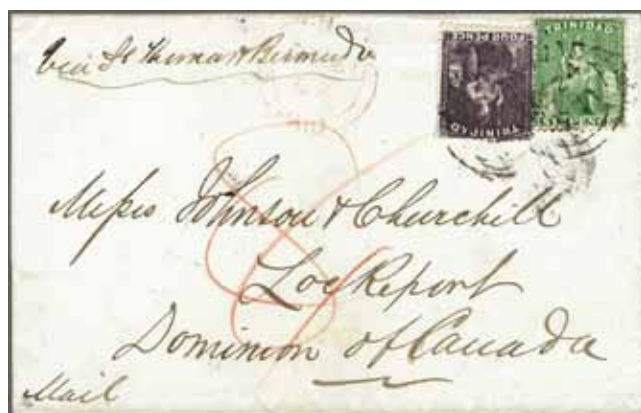 via St Thomas & Bermuda
FOUR PENCE
TRINIDAD
TRINIDAD
SIX PENCE
Messrs Johnson & Churchill
Lockeport
Dominion of Canada
Mail